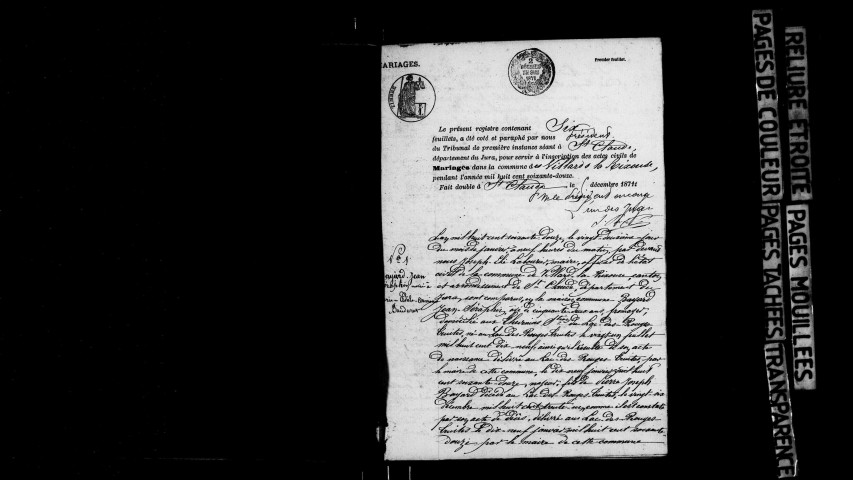 ARIAGES.
Premier feuillet.
TIMBRE
Le présent registre contenant Six
feuillets, a été coté et paraphé par nous président
du Tribunal de première instance séant à St Claude,
département du Jura, pour servir à l'inscription des actes civils de
Mariages dans la commune de Villards la Rixouse,
pendant l'année mil huit cent soixante-douze.
Fait double à St Claude le décembre 1871
P. M. le Président
N° 1
L'an mil huit cent soixante douze, le vingt
du mois de janvier à neuf heures du matin, par devant
nous Joseph maire, officier de l'état
civil de la commune de Villard la Rixouse, canton
et arrondissement de St Claude, département du
Jura, sont comparus en la maison commune Bayard
Jean Séraphin, âgé de cinquante deux ans, fromager,
domicilié aux du Lac des Rouges
Truites, né au Lac des Rouges Truites le juillet
mil huit cent dix neuf ainsi qu'il résulte de son acte
de naissance délivré au Lac des Rouges Truites, par
le maire de cette commune, le dix neuf janvier mil huit
cent soixante douze, majeur, fils de Pierre Joseph
Bayard décédé au Lac des Rouges Truites, le vingt six
décembre mil huit cent trente comme il est constaté
par son acte de décès, délivré aux Lac des Rouges
Truites le dix neuf janvier mil huit cent soixante
douze par le maire de cette commune
RELIURE ETROITE
PAGES MOUILLEES
PAGES DE COULEUR
PAGES TACHEES
TRANSPARENCE